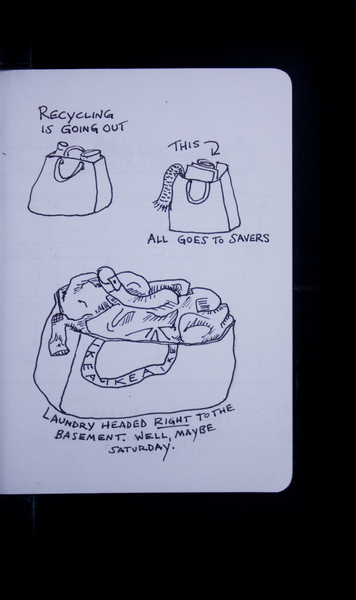 RECYCLING
IS GOING OUT
THIS
ALL GOES TO SAVERS
IKEA IKEA
LAUNDRY HEADED RIGHT TO THE
BASEMENT. WELL, MAYBE
SATURDAY.